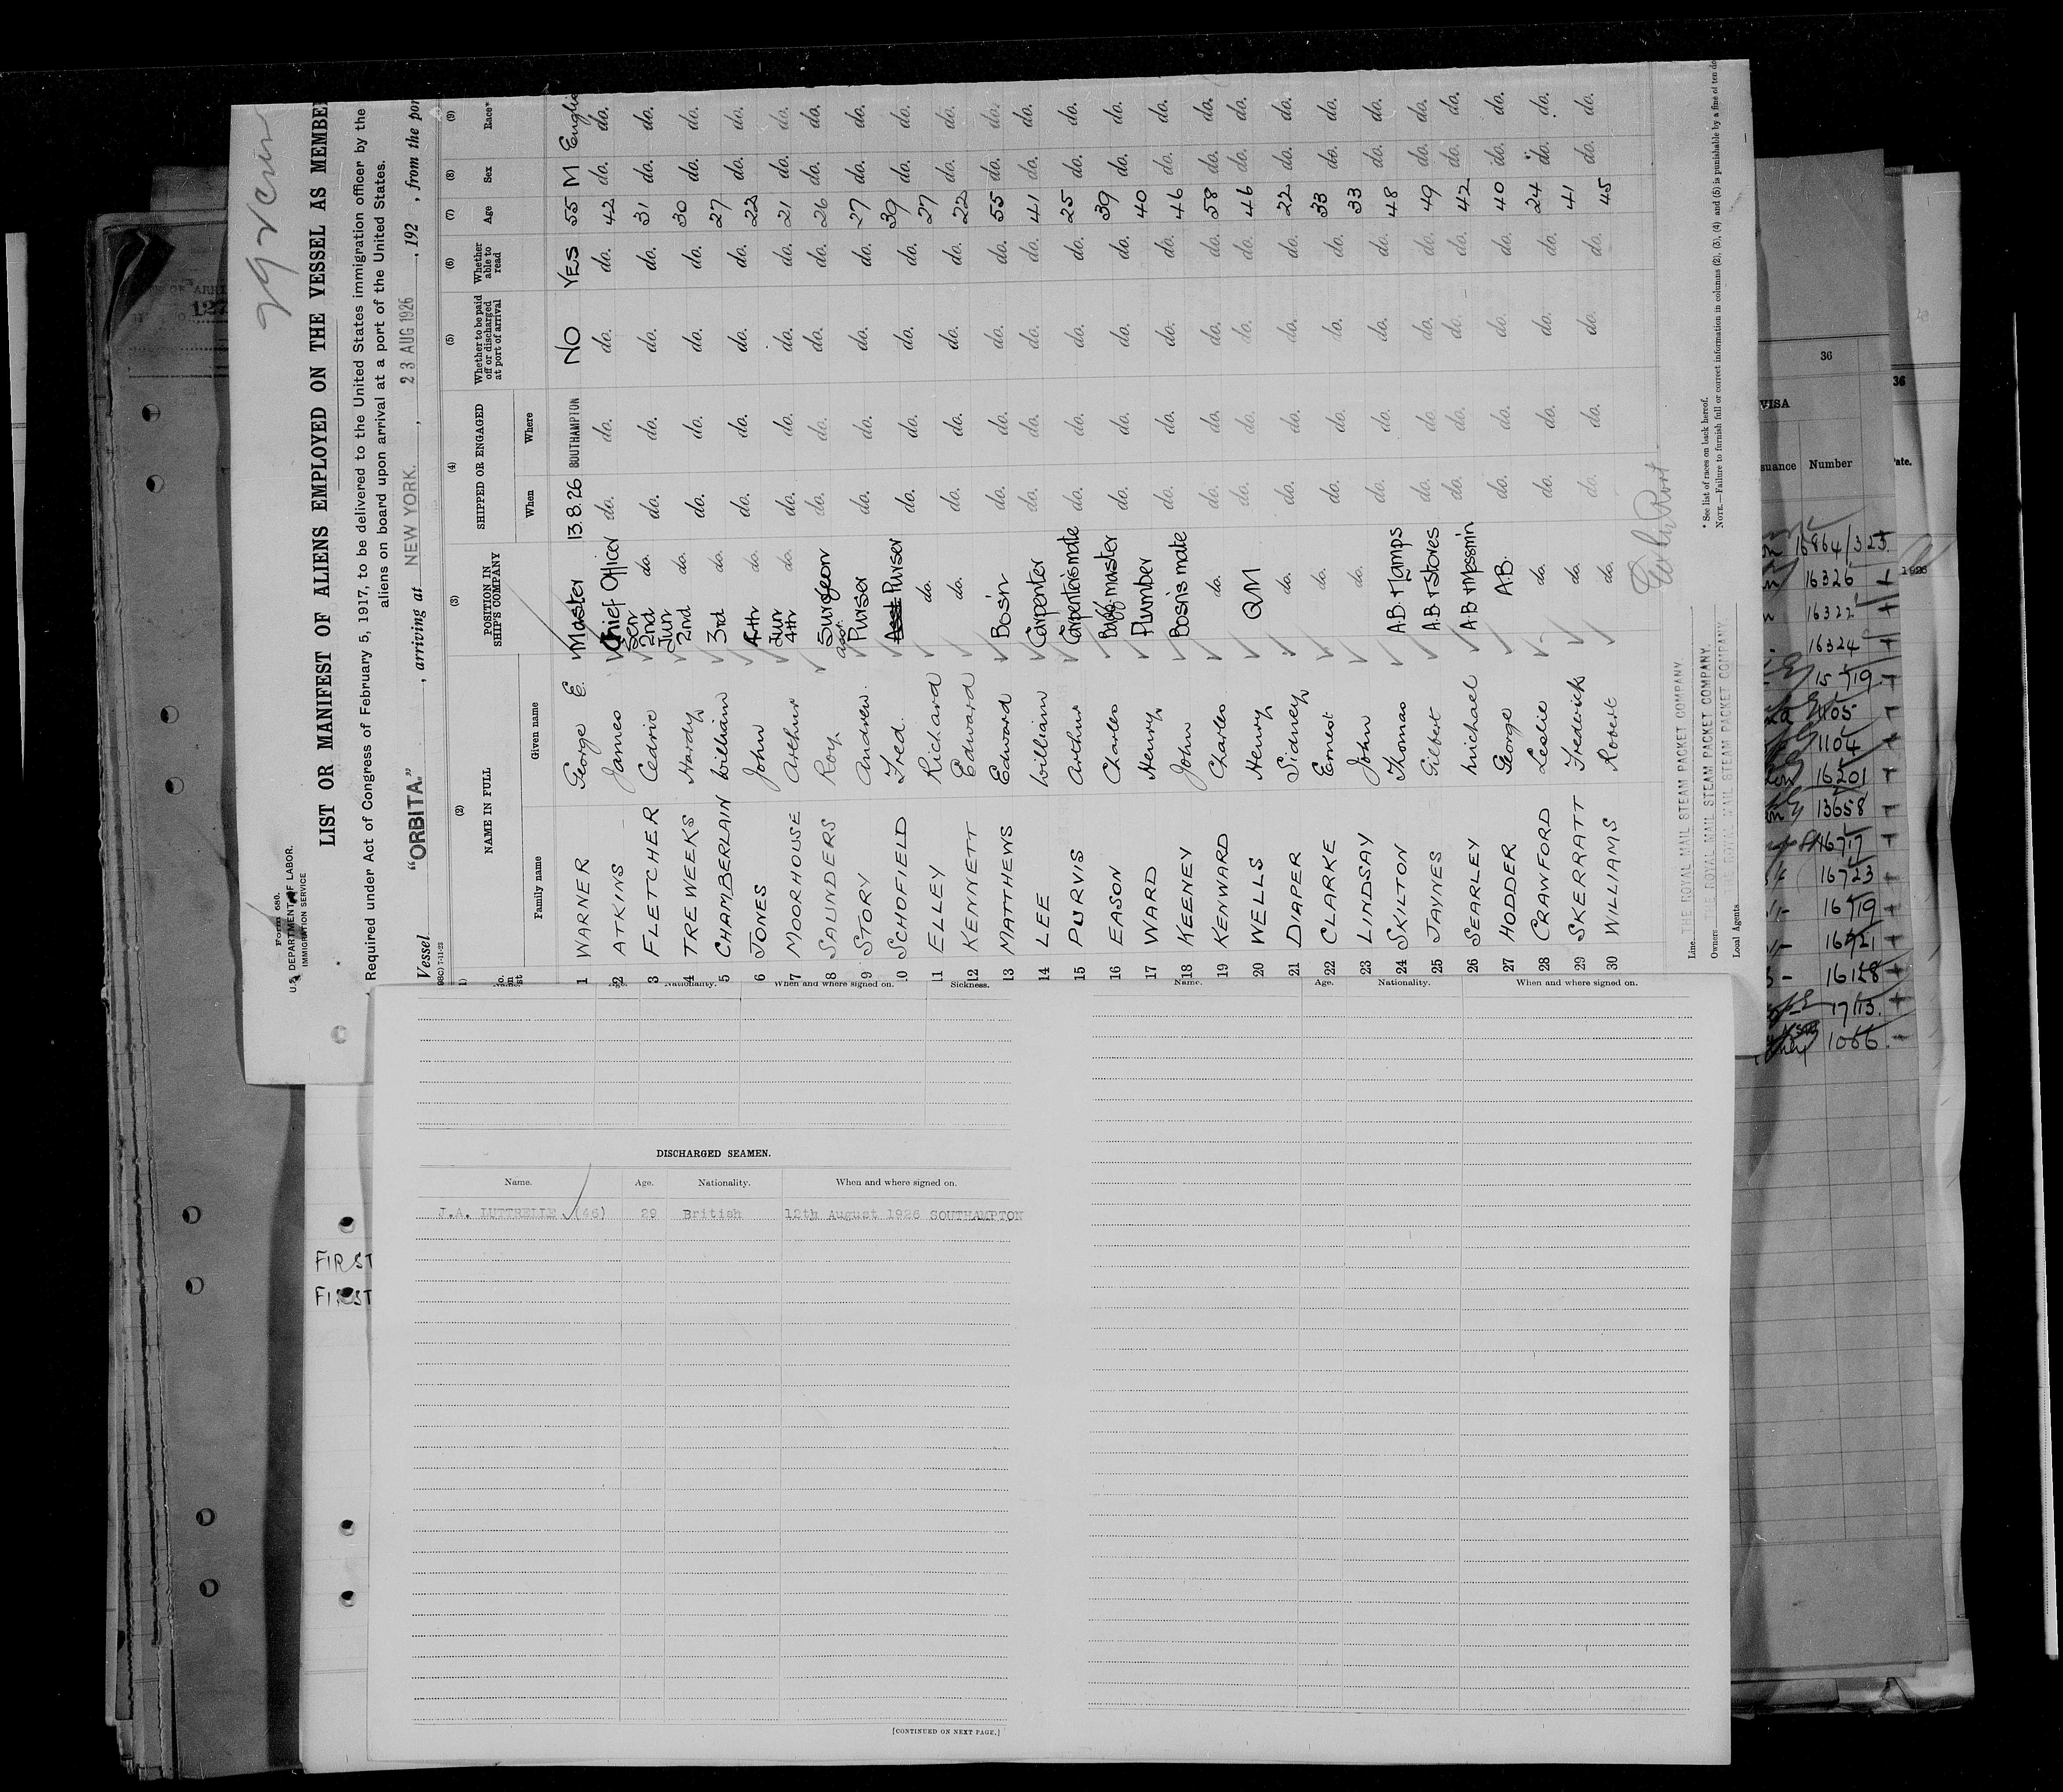 Form 680.
U.S. DEPARTMENT OF LABOR.
IMMIGRATION SERVICE
LIST OR MANIFEST OF ALIENS EMPLOYED ON THE VESSEL AS MEMBE
Required under Act of Congress of February 5, 1917, to be delivered to the United States immigration officer by the
aliens on board upon arrival at a port of the United States.
Vessel "ORBITA." , arriving at NEW YORK. , 23 AUG 1926 , 192 , from the por
(2) (3) (4) (5) (6) (7) (8) (9)
NAME IN FULL POSITION IN SHIP'S COMPANY SHIPPED OR ENGAGED Whether to be paid off or discharged at port of arrival Whether able to read Age Sex Race*
Family name Given name When Where
1 WARNER George E. Master 13.8.26 SOUTHAMPTON NO YES 55 M Englis
2 ATKINS James Chief Officer do. do. do. do. 42 do. do.
3 FLETCHER Cedric Sen 2nd do. do. do. do. do. 31 do. do.
4 TREWEEKS Hardy Jun 2nd do. do. do. do. do. 30 do. do.
5 CHAMBERLAIN William 3rd do. do. do. do. do. 27 do. do.
6 JONES John 4th do. 22
7 MOORHOUSE Arthur Jun 4th do. do. do. do. do. 21 do. do.
8 SAUNDERS Roy Surgeon do. do. do. do. 26 do. do.
9 STORY Andrew Purser do. do. do. do. 27 do. do.
10 SCHOFIELD Fred. Asst Purser do. do. do. do. 39 do. do.
11 ELLEY Richard do. 27
12 KENNETT Edward do. do. do. do. do. 22 do. do.
13 MATTHEWS Edward Bos'n do. do. do. do. 55 do. do.
14 LEE William Carpenter do. do. do. do. 41 do. do.
15 PURVIS Arthur Carpenter's mate do. do. do. do. 25 do. do.
16 EASON Charles Bagg. master do. do. do. do. 39 do. do.
17 WARD Henry Plumber 40
18 KEENEY John Bosn's mate do. do. do. do. 46 do. do.
19 KENWARD Charles do. do. do. do. do. 58 do. do.
20 WELLS Henry QM do. do. do. do. 46 do. do.
21 DIAPER Sidney do. do. do. do. do. 22 do. do.
22 CLARKE Ernest do. do. do. do. do. 33 do. do.
23 LINDSAY John do. do. do. do. do. 33 do. do.
24 SKILTON Thomas A.B. + Lamps 48
25 JAYNES Gilbert A.B. + Stores do. do. do. do. 49 do. do.
26 SEARLEY Michael A.B. + Messmin do. do. do. do. 42 do. do.
27 HODDER George A.B. do. do. do. do. 40 do. do.
28 CRAWFORD Leslie do. do. do. do. do. 24 do. do.
29 SKERRATT Frederick do. do. do. do. do. 41 do. do.
30 WILLIAMS Robert do. 45
Line THE ROYAL MAIL STEAM PACKET COMPANY.
Owners THE ROYAL MAIL STEAM PACKET COMPANY.
Local Agents THE ROYAL MAIL STEAM PACKET COMPANY
* See list of races on back hereof.
NOTE.—Failure to furnish full or correct information in columns (2), (3), (4) and (5) is punishable by a fine of ten do
Nationality. When and where signed on. Sickness.
Name. Age. Nationality. When and where signed on.
DISCHARGED SEAMEN.
Name. Age. Nationality. When and where signed on.
J.A. LUTTRELLE (46) 29 British 12th August 1926 SOUTHAMPTON
[CONTINUED ON NEXT PAGE.]
FIRST
FIRST
36
36
VISA
suance Number
16864/323
16326
16322
16324
1105
1104
16201
13658
16717
16723
16719
16721
16128
1713.
1066